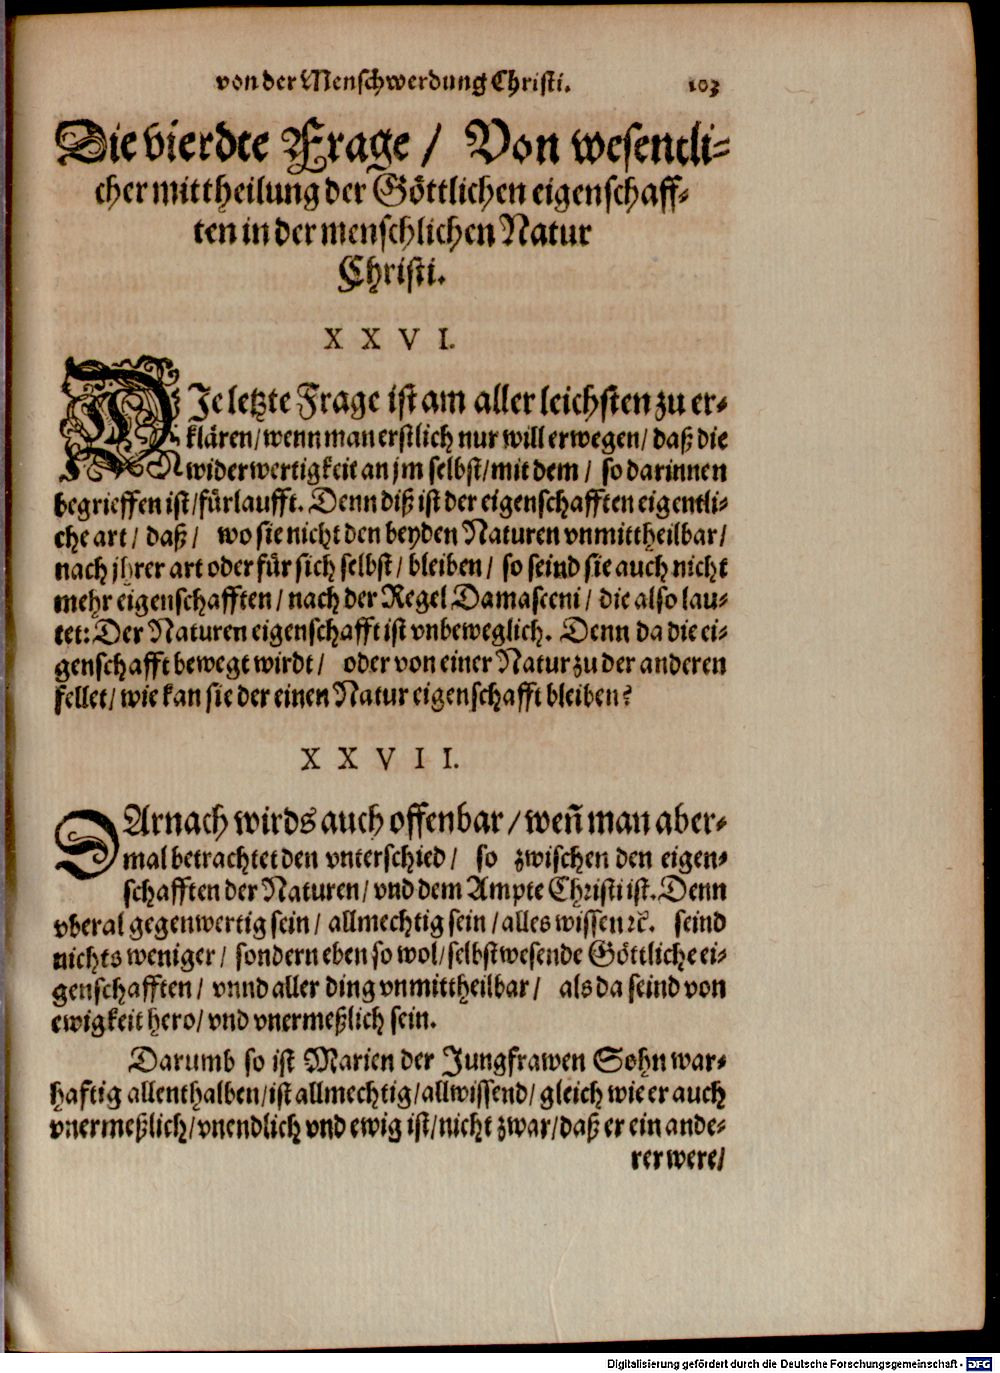 von der Menschwerdung Christi. 103
Die vierdte Frage / Von wesentli-
cher mittheilung der Göttlichen eigenschaff-
ten in der menschlichen Natur
Christi.
XXVI.
DIe letzte Frage ist am aller leichsten zu er-
klären/ wenn man erstlich nur will erwegen/ daß die
widerwertigkeit an jm selbst/ mit dem / so darinnen
begrieffen ist/ fürlaufft. Denn diß ist der eigenschafften eigentli-
che art / daß / wo sie nicht den beyden Naturen vnmittheilbar/
nach jhrer art oder für sich selbst/ bleiben/ so seind sie auch nicht
mehr eigenschafften / nach der Regel Damasceni / die also lau-
tet: Der Naturen eigenschafft ist vnbeweglich. Denn da die ei-
genschafft bewegt wirdt / oder von einer Natur zu der anderen
fellet/ wie kan sie der einen Natur eigenschafft bleiben?
XXVII.
DArnach wirds auch offenbar / weñ man aber-
mal betrachtet den vnterschied / so zwischen den eigen-
schafften der Naturen/ vnd dem Ampte Christi ist. Denn
vberal gegenwertig sein/ allmechtig sein / alles wissen ꝛc. seind
nichts weniger / sondern eben so wol/ selbstwesende Göttliche ei-
genschafften / vnnd aller ding vnmittheilbar / als da seind von
ewigkeit hero/ vnd vnermeßlich sein.
Darumb so ist Marien der Jungfrawen Sohn war-
haftig allenthalben/ ist allmechtig/ allwissend/ gleich wie er auch
vnermeßlich/ vnendlich vnd ewig ist/ nicht zwar/ daß er ein ande-
rer were/
Digitalisierung gefördert durch die Deutsche Forschungsgemeinschaft - DFG